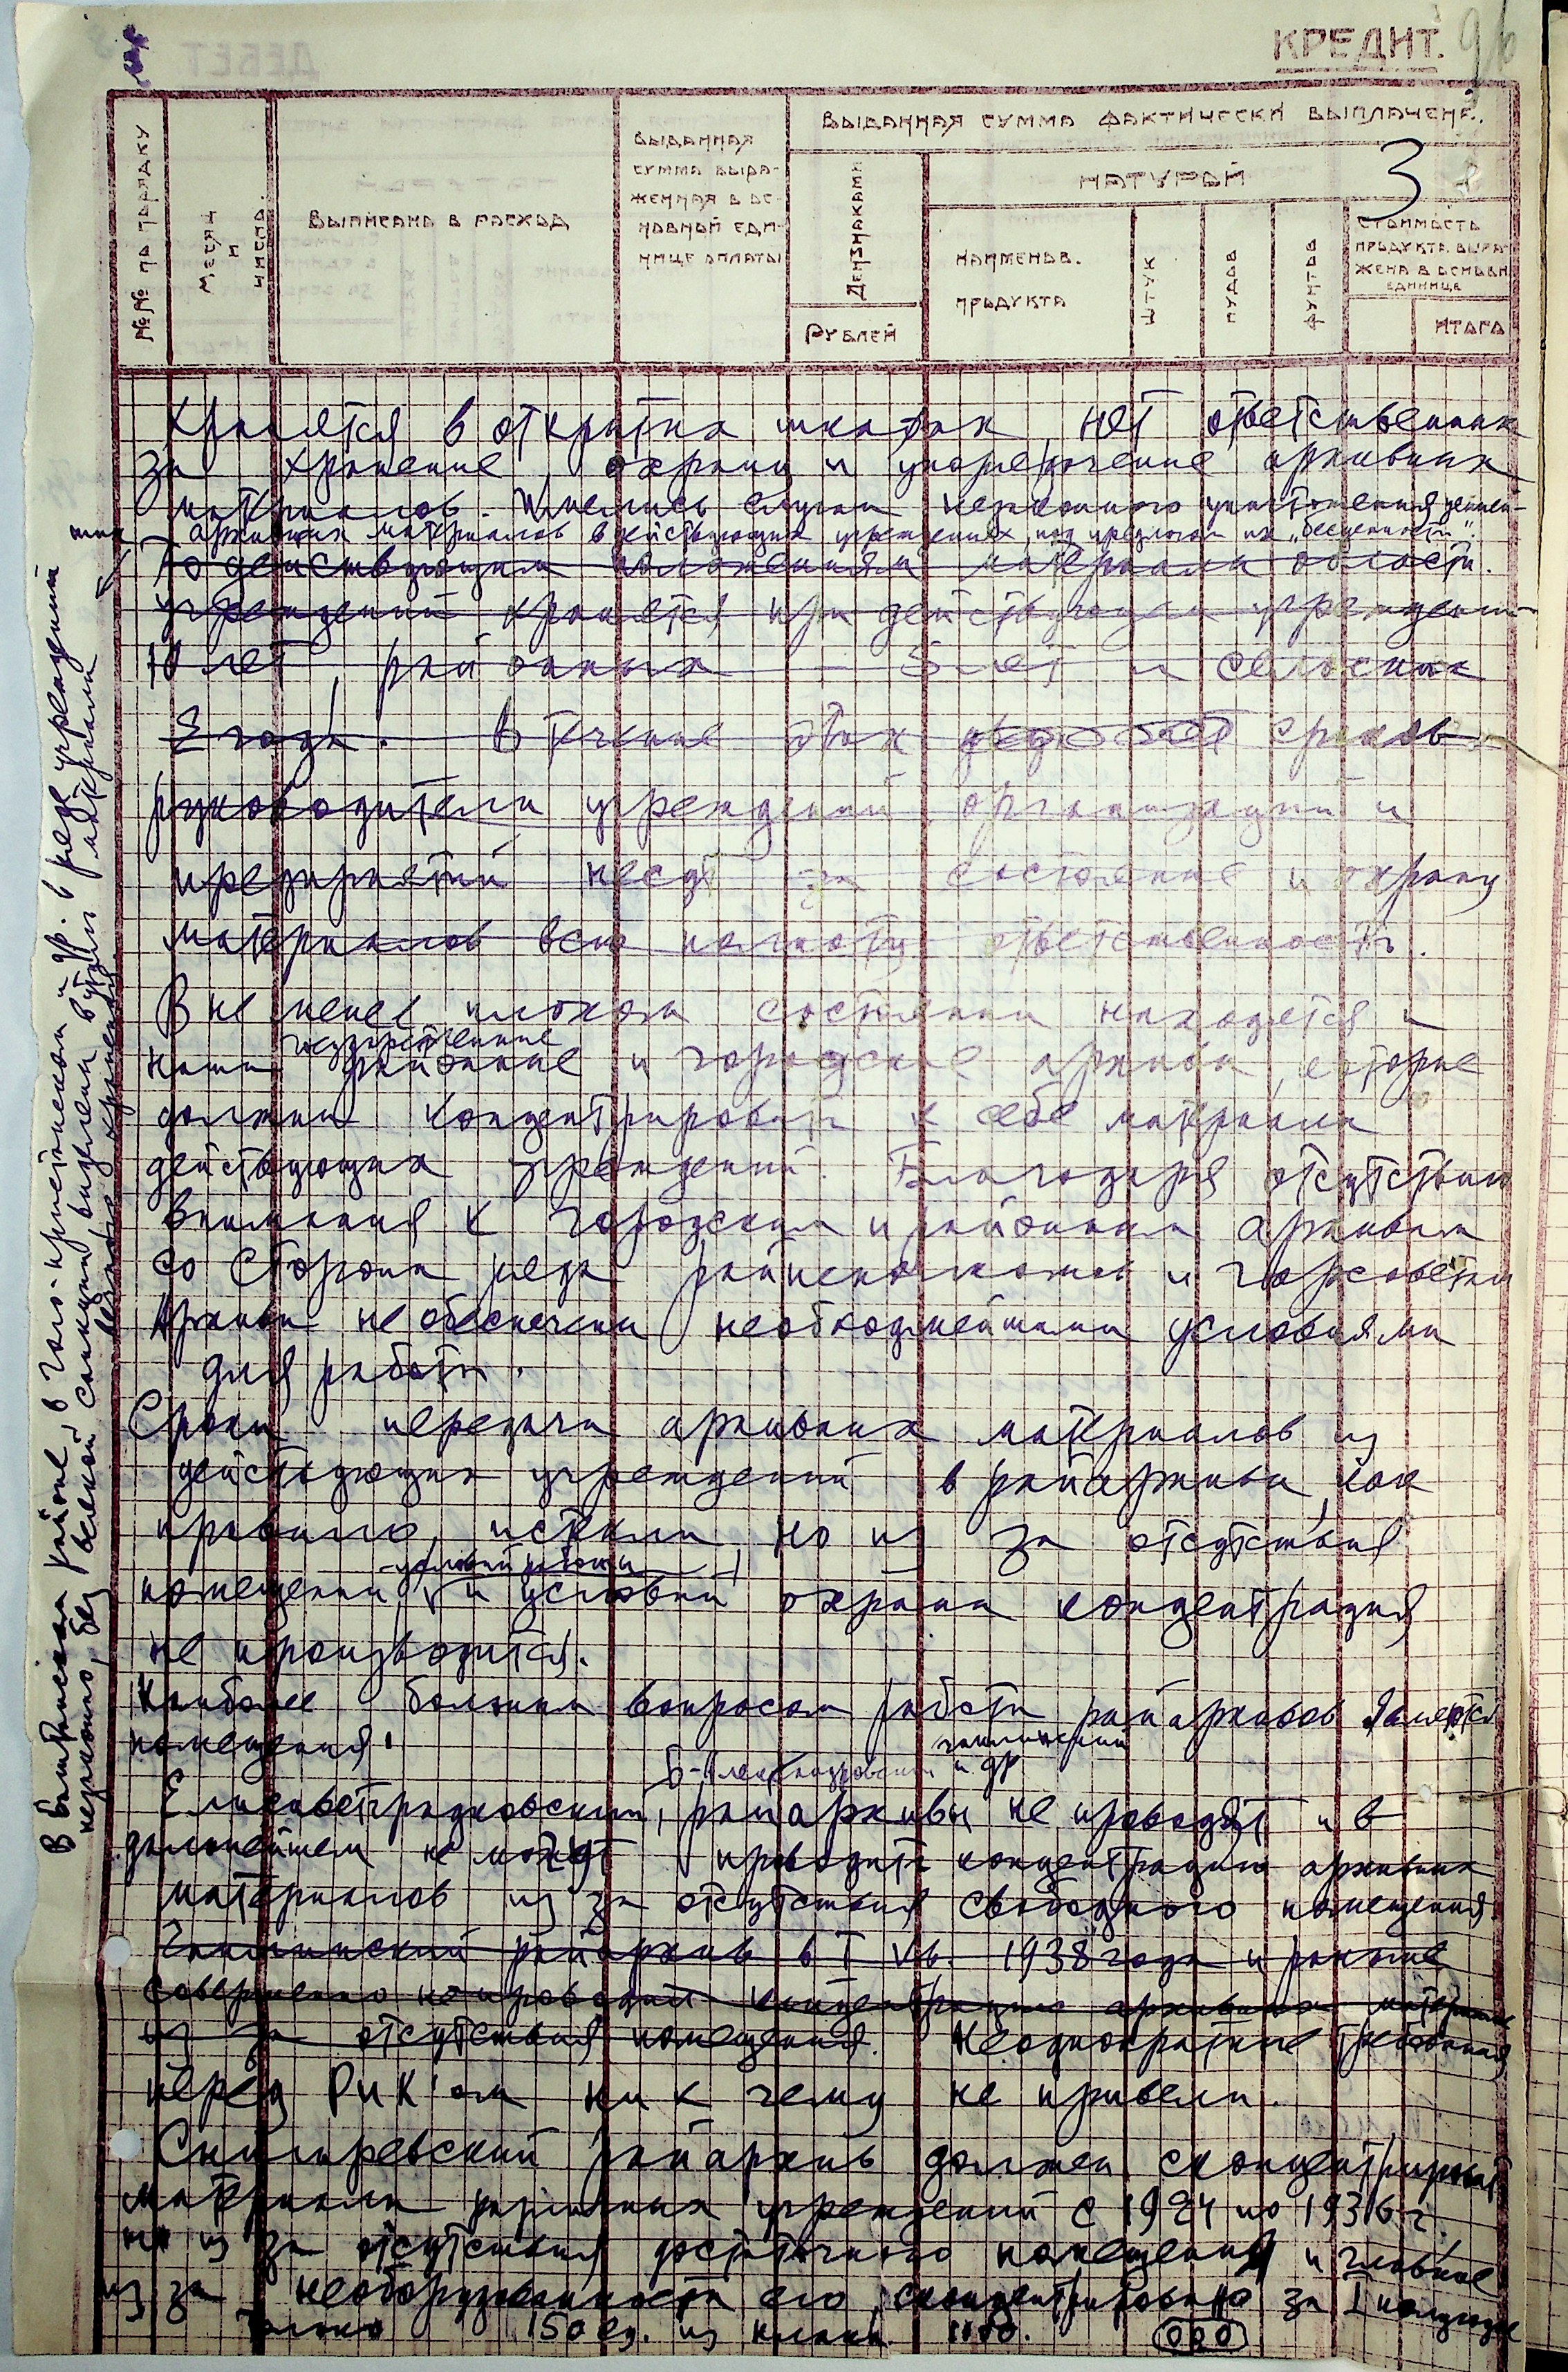 КРЕДИТ.
96
3
№№ по порядку
Месяц и число.
Выписано в расход
Выданная сумма выра-
женная в ос-
новной еди-
нице оплаты
Выданная сумма фактически выплачена.
Дензнаками
Рублей
Натурой
Наименов. продукта
Штук
Пудов
Фунтов
Стоимость
продукта выра-
жена в основн.
единице
Итого
хранятся в открытых шкафах, нет ответственных
за хранение, охрану и упорядочение архивных
материалов. Имелись случаи незаконного уничтожения ценней-
ших архивных материалов в действующих учреждениях, под предлогом их „бесценности".
По действующим положениям материалы област.
учреждений хранятся при действующем учреждении
10 лет, районных — 5 лет и сельских
года. В течение этих сроков
руководители учреждений организаций и
предприятий несут за состояние и охрану
материалов всю полноту ответственности.
В не менее плохом состоянии находятся и
наши государственные
районные и городские архивы, которые
должны концентрировать к себе материалы
действующих учреждений. Благодаря отсутствию
внимания к городским и районным архивам
со стороны ряда райисполкомов и горсоветов
Архивы не обеспечены необходимейшими условиями
для работы.
Сроки передачи архивных материалов из
действующих учреждений в райархивы, как
правило, истекли, но из за отсутствия
помещений, условий работы и условий охраны концентрация
не производится.
Наиболее больным вопросом работы райархивов являются
помещения.
Б-Александровский и др
Елисаветградковский, райархивы не проводят и в
дальнейшем не могут проводить концентрацию архивных
материалов из за отсутствия свободного помещения.
райархив в I кв. 1938 года и раньше
совершенно не проводил концентрацию архивных материалов
из за отсутствия помещения. Неоднократные требования
перед РИК'ом ни к чему не привели.
Снигиревский райархив должен сконцентрировать
материалы различных учреждений с 1924 по 1936 г.
но из за отсутствия достаточного помещения и главное
из за необорудованности его, сконцентрировано за I полугодие
только 150 ед. из
020
В районе, в и др. в ряде учреждений
незаконно, без всякой санкции, выделены в утиль материалы
хранения